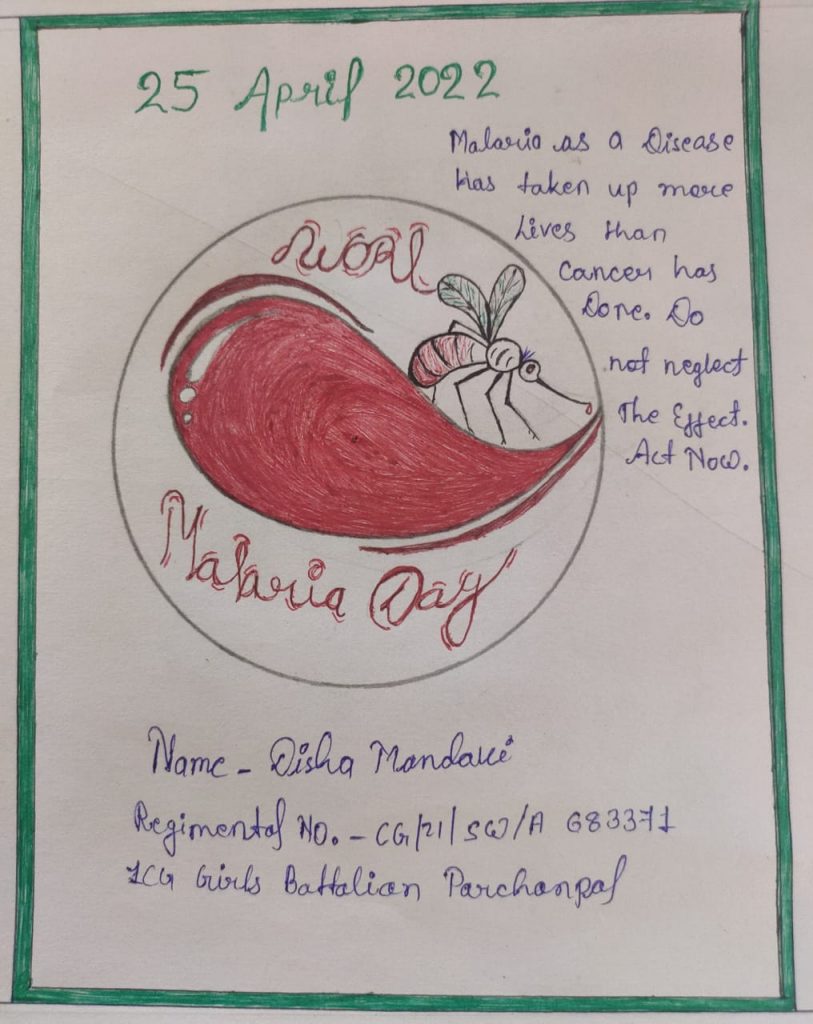 25 April 2022
Malaria as a Disease
Has taken up more
Lives than
Cancer has
Done. Do
not neglect
The Effect.
Act Now.
Worl
Malaria Day
Name - Disha Mandavi
Regimental NO. - CG/21/SW/A 683371
1CG Girls Battalian Parchanpal